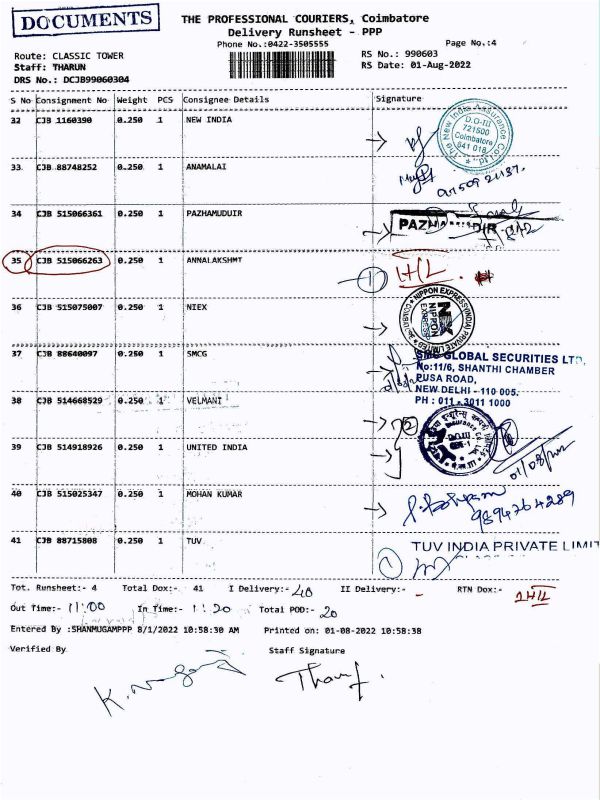 DOCUMENTS
THE PROFESSIONAL COURIERS, Coimbatore
Delivery Runsheet - PPP
Phone No.:0422-3505555
Page No.:4
Route: CLASSIC TOWER
RS No.: 990603
Staff: THARUN
RS Date: 01-Aug-2022
DRS No.: DCJB99060304
S No Consignment No Weight PCS Consignee Details Signature
32 CJB 1160390 0.250 1 NEW INDIA
The New India Assurance Co. Ltd.
D.O-III
721500
Coimbatore
641 018
33 CJB 88748252 0.250 1 ANAMALAI
34 CJB 515066361 0.250 1 PAZHAMUDUIR
35 CJB 515066263 0.250 1 ANNALAKSHMT
36 CJB 515075007 0.250 1 NIEX
NIPPON EXPRESS (INDIA) PRIVATE LIMITED
NX
NIPPON
EXPRESS
37 CJB 88640097 0.250 1 SMCG
SMC GLOBAL SECURITIES LTD.
No:11/6, SHANTHI CHAMBER
PUSA ROAD,
NEW DELHI - 110 005.
PH : 011 - 3011 1000
38 CJB 514668529 0.250 1 VELMANI
39 CJB 514918926 0.250 1 UNITED INDIA
40 CJB 515025347 0.250 1 MOHAN KUMAR
9894764289
41 CJB 88715808 0.250 1 TUV
TUV INDIA PRIVATE LIMIT
Tot. Runsheet:- 4 Total Dox:- 41 I Delivery:- 40 II Delivery:- - RTN Dox:-
Out Time:- 11:00 In Time:- 11:20 Total POD:- 20
Entered By :SHANMUGAMPPP 8/1/2022 10:58:30 AM Printed on: 01-08-2022 10:58:38
Verified By
Staff Signature